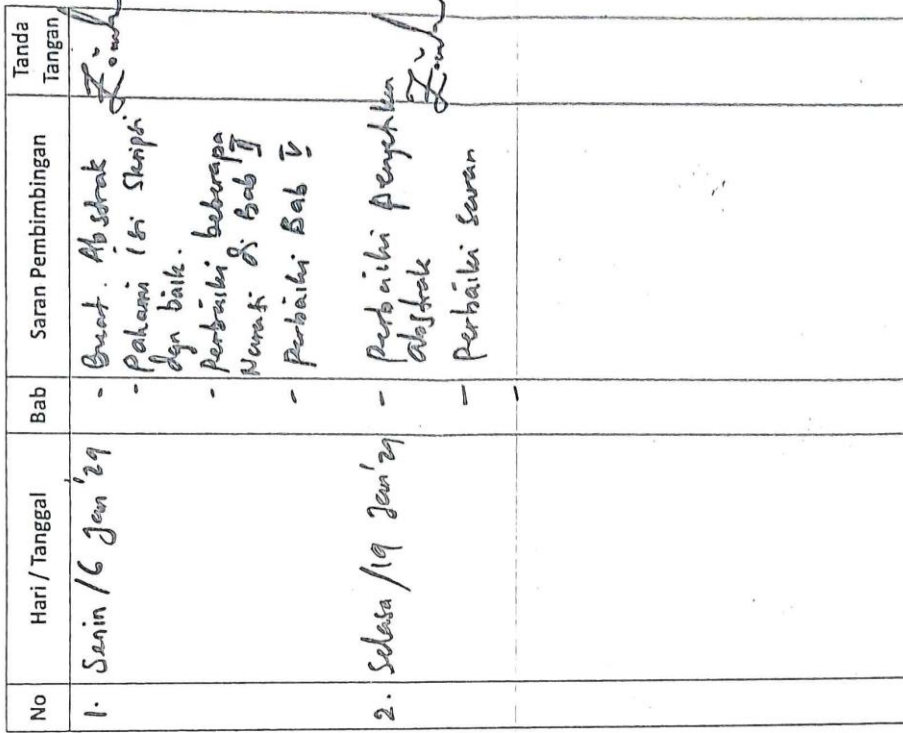 No Hari / Tanggal Bab Saran Pembimbingan Tanda Tangan
1. Senin / 6 Jan '29 - Buat Abstrak
- Pahami isi Skripsi
dgn baik.
- Perbaiki beberapa
Narasi di Bab II
- Perbaiki Bab V
2. Selasa / 19 Jan '29 - Perbaiki
abstrak
- Perbaiki saran
-